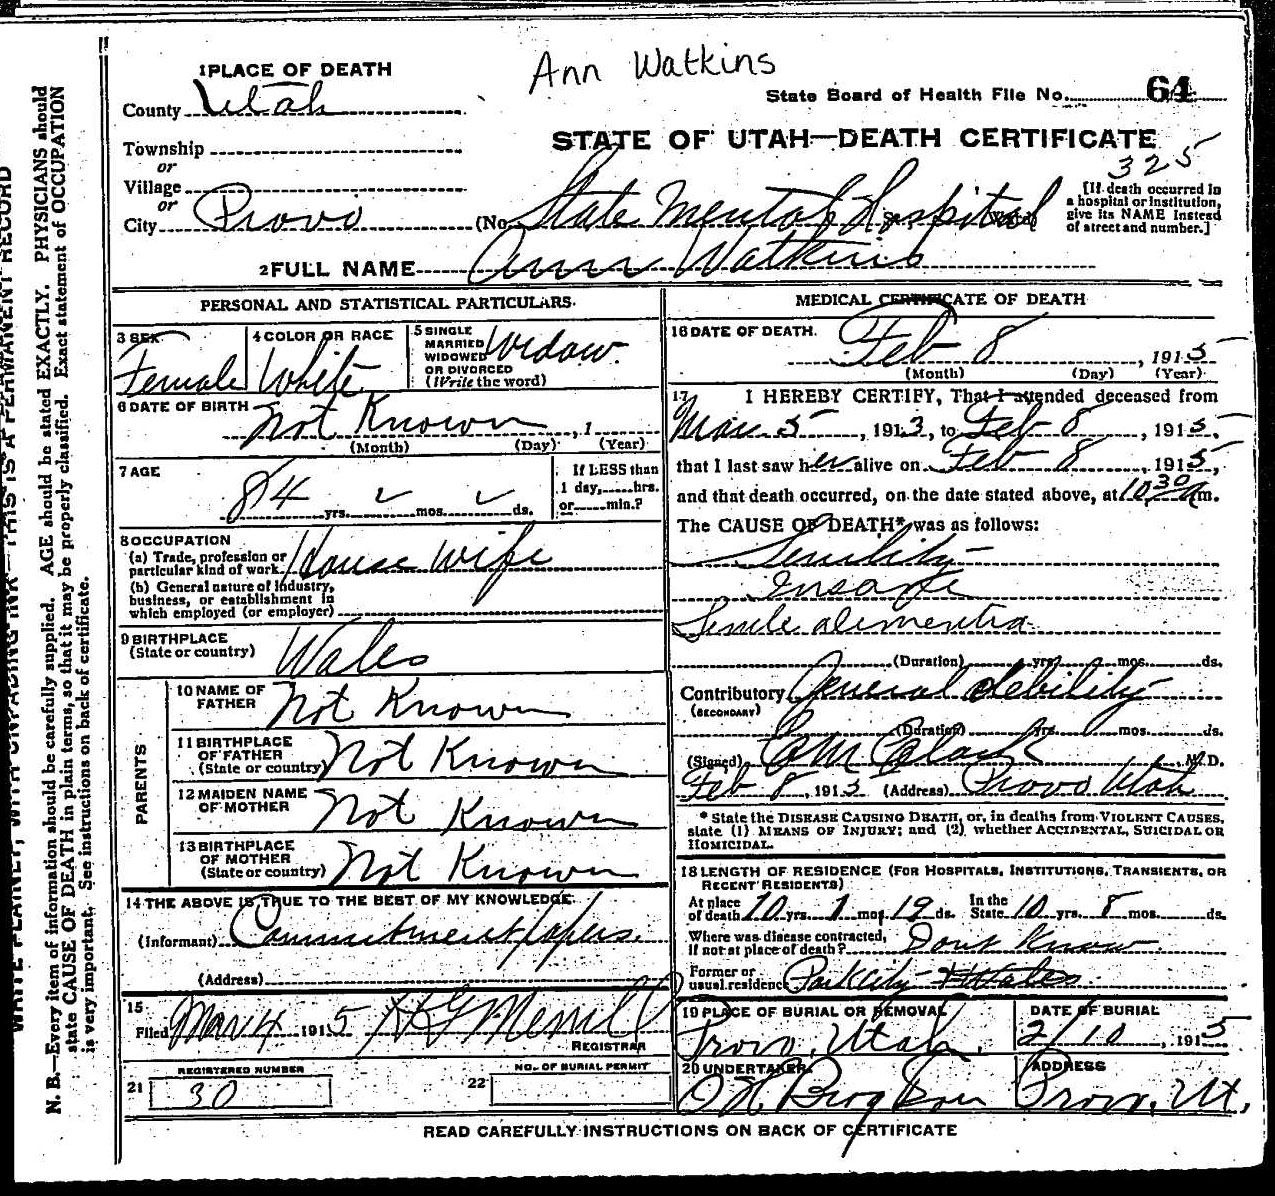 Ann Watkins
1 PLACE OF DEATH
County Utah
State Board of Health File No. 64
STATE OF UTAH—DEATH CERTIFICATE
325
Township
or
Village
or
City Provo (No. State Mental Hospital
[If death occurred in
a hospital or institution,
give its NAME instead
of street and number.]
2 FULL NAME Ann Watkins
PERSONAL AND STATISTICAL PARTICULARS.
3 SEX Female
4 COLOR OR RACE White
5 SINGLE
MARRIED
WIDOWED
OR DIVORCED
(Write the word)
Widow.
6 DATE OF BIRTH Not Known , 1
(Month) (Day) (Year)
7 AGE
84 yrs. mos. ds.
If LESS than
1 day, hrs.
or min.?
8 OCCUPATION
(a) Trade, profession or
particular kind of work House wife
(b) General nature of industry,
business, or establishment in
which employed (or employer)
9 BIRTHPLACE
(State or country) Wales
PARENTS
10 NAME OF
FATHER Not Known
11 BIRTHPLACE
OF FATHER
(State or country) Not Known
12 MAIDEN NAME
OF MOTHER Not Known
13 BIRTHPLACE
OF MOTHER
(State or country) Not Known
14 THE ABOVE IS TRUE TO THE BEST OF MY KNOWLEDGE.
(Informant) Commitment papers.
(Address)
15
Filed Mar 4 1915
REGISTRAR
REGISTERED NUMBER
21 30
NO. OF BURIAL PERMIT
22
MEDICAL CERTIFICATE OF DEATH
16 DATE OF DEATH.
Feb 8 , 1915
(Month) (Day) (Year)
17 I HEREBY CERTIFY, That I attended deceased from
Mar. 5 , 1913, to Feb 8 , 1915,
that I last saw her alive on Feb 8 , 1915,
and that death occurred, on the date stated above, at 10 30 A m.
The CAUSE OF DEATH* was as follows:
Senility
Insane
Senile dementia
(Duration) yrs. mos. ds.
Contributory General debility
(SECONDARY)
(Duration) yrs. mos. ds.
(Signed) M. D.
Feb 8 , 1915 (Address) Provo Utah
* State the DISEASE CAUSING DEATH, or, in deaths from VIOLENT CAUSES,
state (1) MEANS OF INJURY; and (2) whether ACCIDENTAL, SUICIDAL OR
HOMICIDAL.
18 LENGTH OF RESIDENCE (FOR HOSPITALS, INSTITUTIONS, TRANSIENTS, OR
RECENT RESIDENTS)
At place
of death 10 yrs. 1 mos. 19 ds.
In the
State 10 yrs. 8 mos. ds.
Where was disease contracted,
if not at place of death? Dont Know
Former or
usual residence Park City Wales
19 PLACE OF BURIAL OR REMOVAL
Provo, Utah.
DATE OF BURIAL
2/10 , 1915
20 UNDERTAKER
ADDRESS
Provo, Ut.
READ CAREFULLY INSTRUCTIONS ON BACK OF CERTIFICATE
N. B.—Every item of information should be carefully supplied. AGE should be stated EXACTLY. PHYSICIANS should
state CAUSE OF DEATH in plain terms, so that it may be properly classified. Exact statement of OCCUPATION
is very important. See instructions on back of certificate.